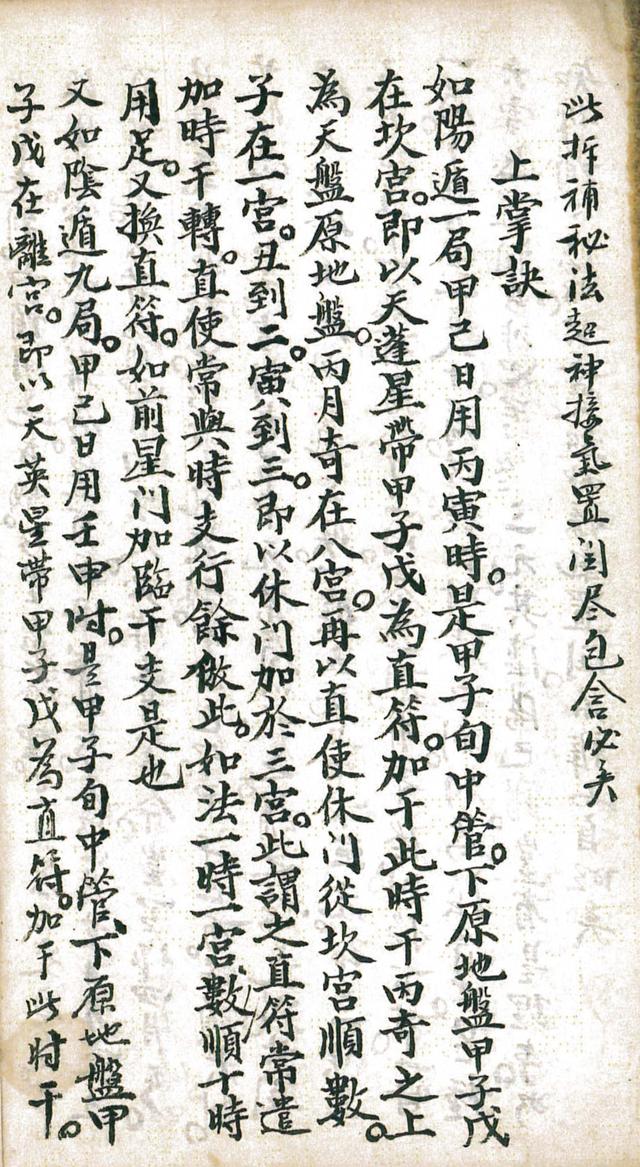 此拆補秘法超神接氣置闰尽包含必矣
上掌訣
如陽遁一局甲己日用丙寅時。是甲子旬中管。下原地盤甲子戊
在坎宮。即以天蓬星帶甲子戊為直符。加于此時干丙奇之上
為天盤原地盤。丙月奇在八宮。再以直使休门從坎宮順數。
子在一宮。丑到二。寅到三。即以休门加於三宮。此謂之直符常遣
加時干轉。直使常與時支行餘倣此。如法一時一宮數順十時
用足。又換直符。如前星门加臨干支是也
又如陰遁九局。甲己日用壬申时。是甲子旬中管、下原地盤甲
子戊在離宮。即以天英星帶甲子戊為直符。加于此时干。